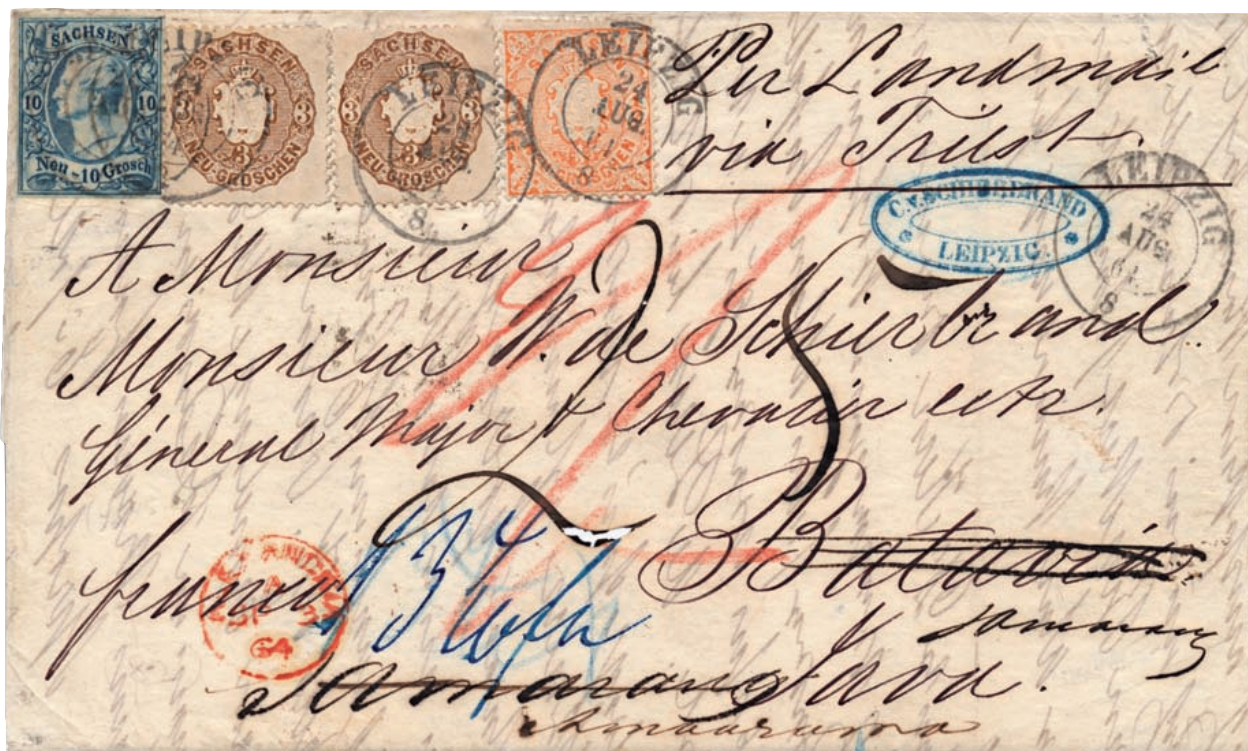 SACHSEN
10 10
Neu-10 Grosch
SACHSEN
3 3
3
NEU-GROSCHEN
SACHSEN
3 3
3
NEU-GROSCHEN
LEIPZIG
24
AUG.
8
LEIPZIG
24
AUG.
8
Per Landmail
via Triest.
C.V.SCHIERBRAND
LEIPZIG
LEIPZIG
24
AUG.
64
8
A Monsieur
Monsieur W. de Schierbrand
Général Major & Chevalier
Batavia
franco
64
Samarang Java.